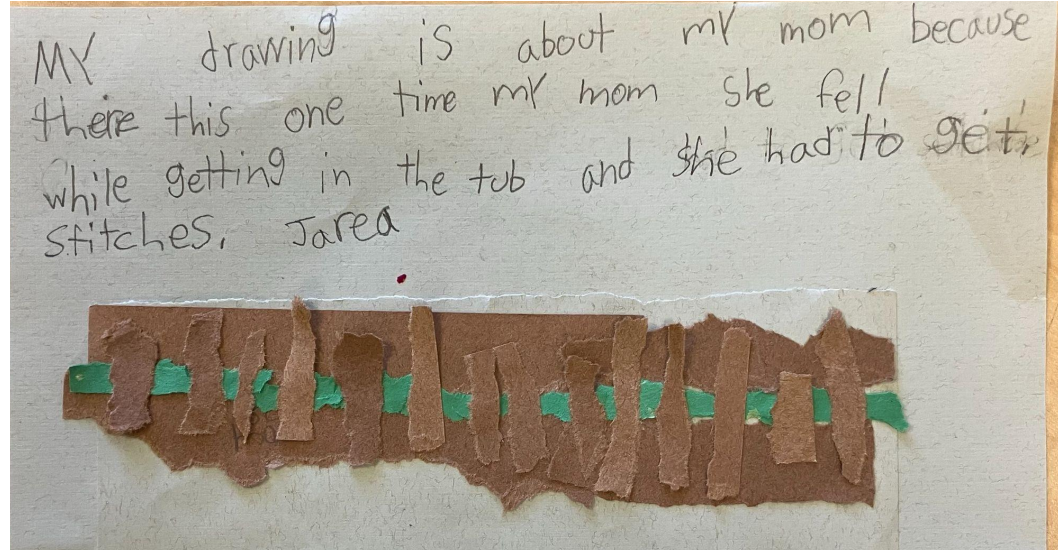 My drawing is about my mom because
there this one time my mom she fell
while getting in the tub and she had to get
stitches. Jarea